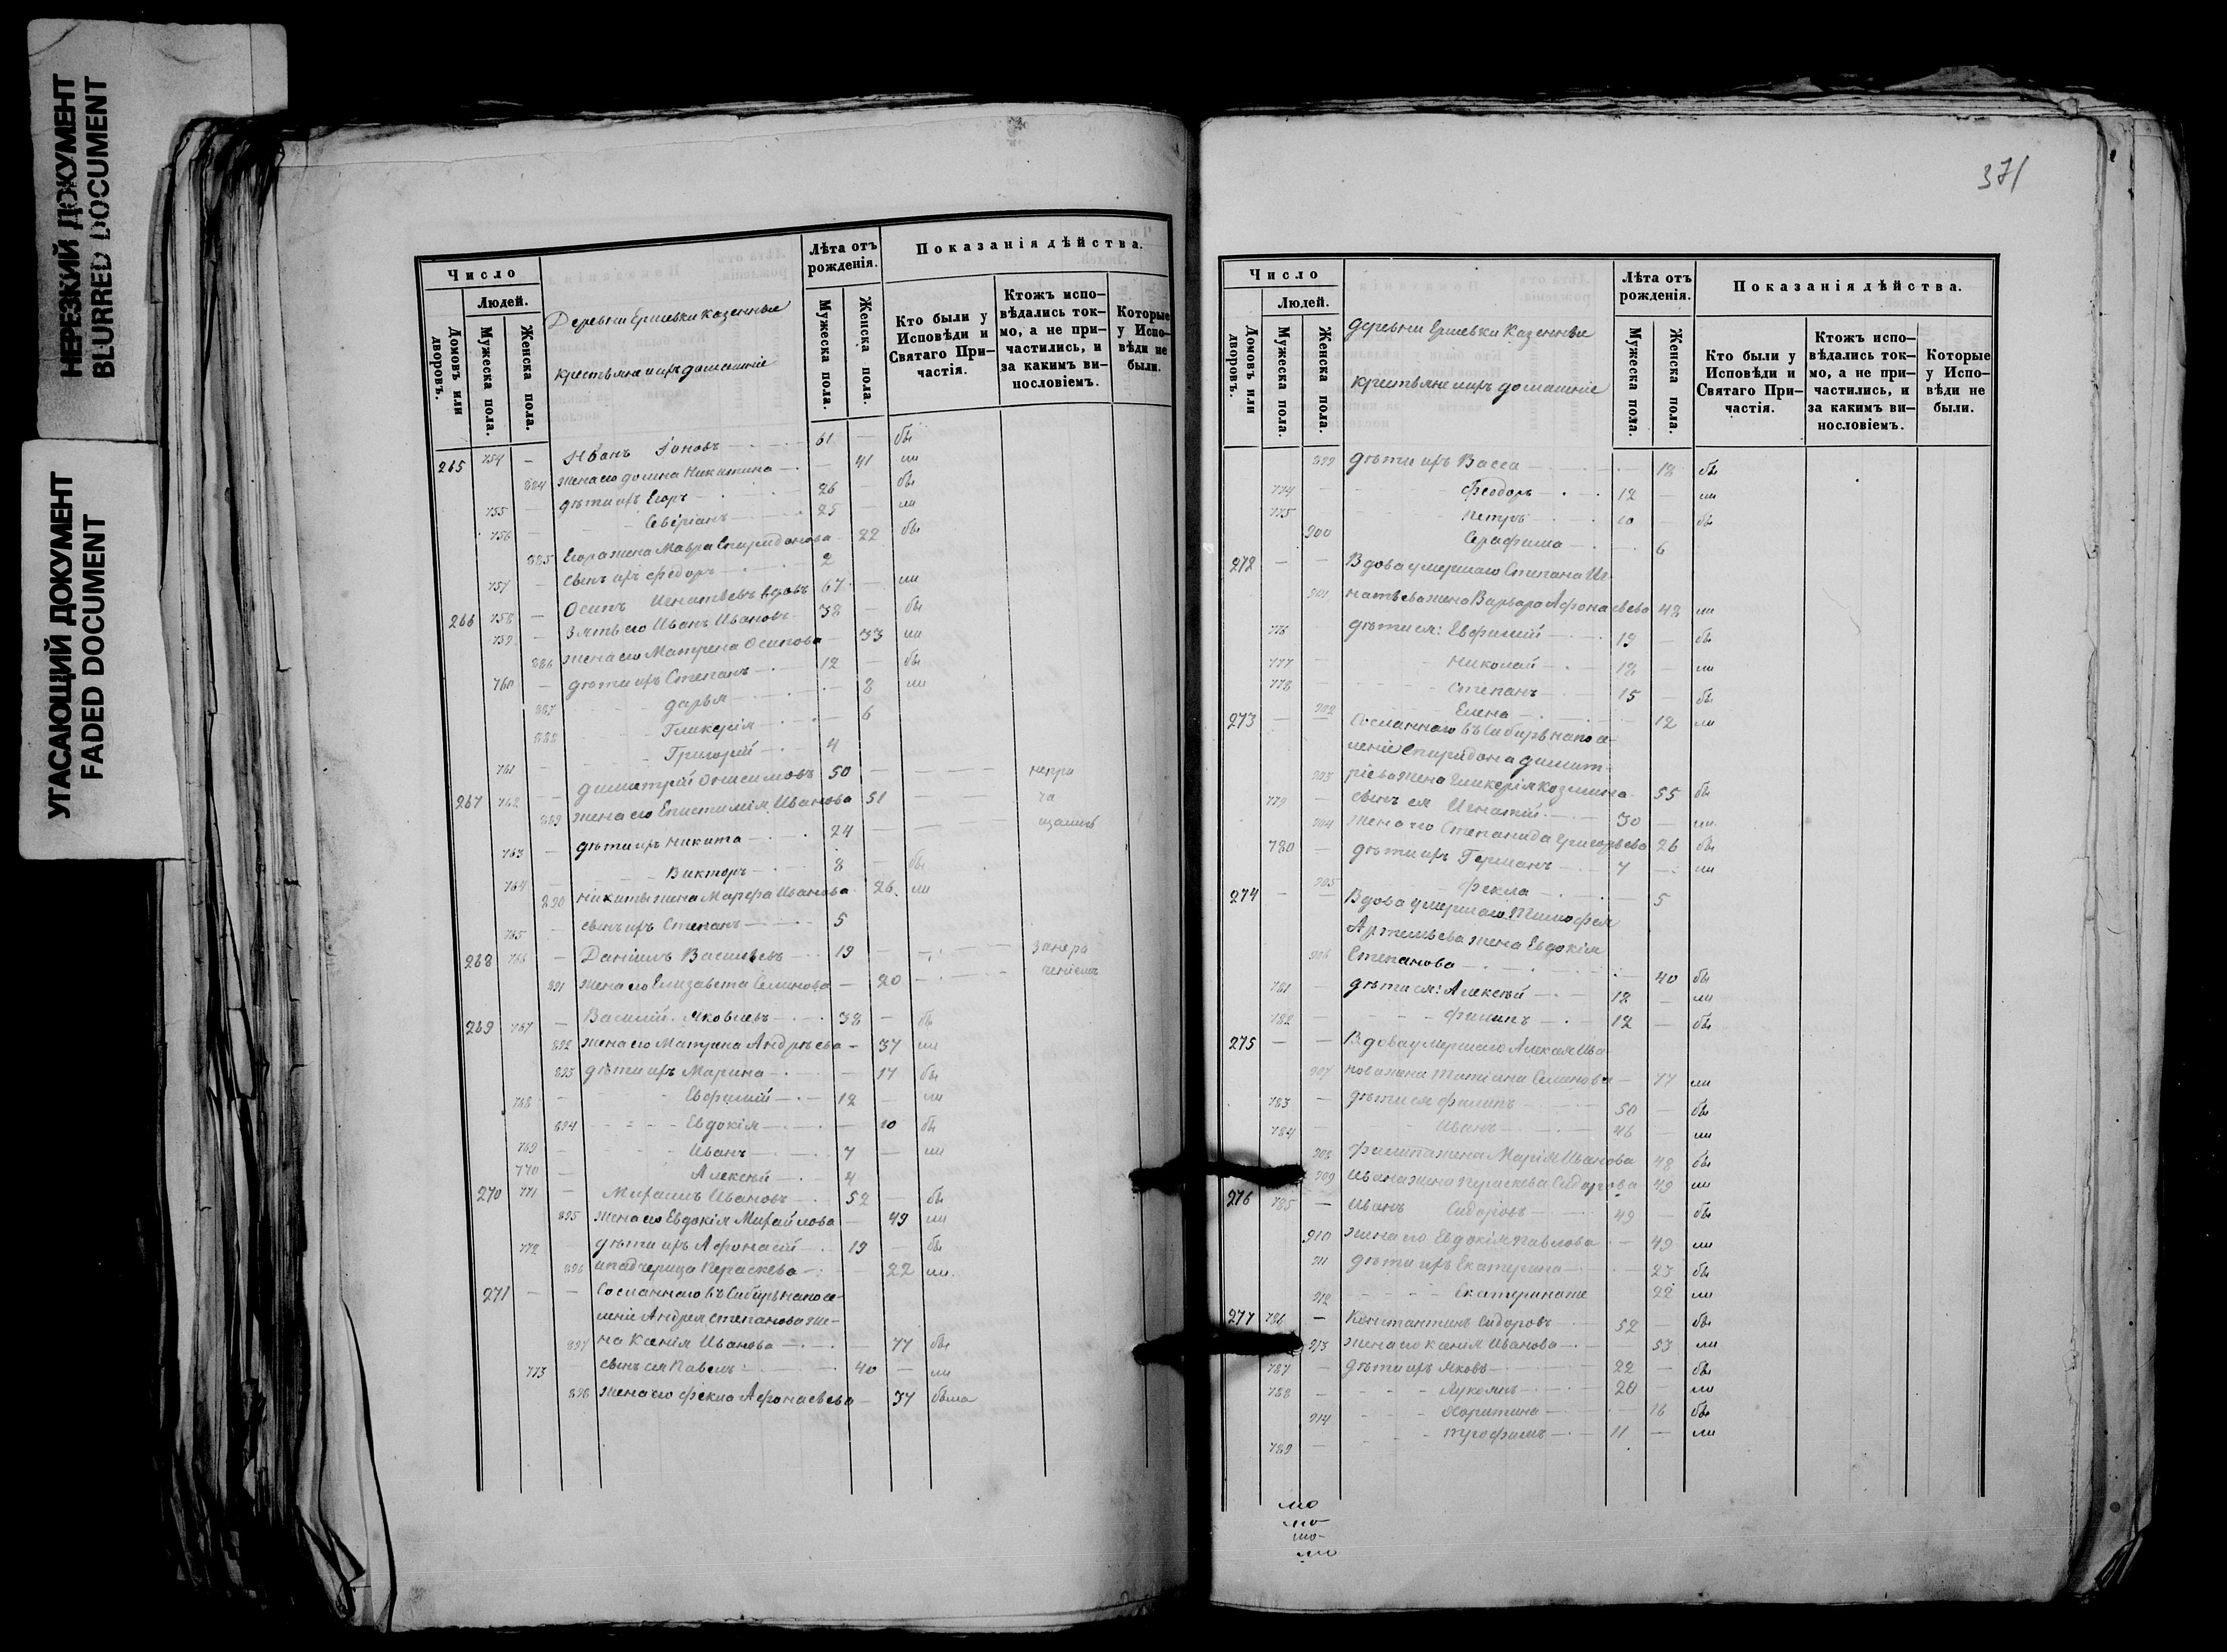 НЕРЕЗКИЙ ДОКУМЕНТ
BLURRED DOCUMENT
УГАСАЮЩИЙ ДОКУМЕНТ
FADED DOCUMENT
Число
Людей.
Домовъ или дворовъ.
Мужеска пола.
Женска пола.
Деревни Ершевки казенные
крестьяне и ихъ домашніе
Лѣта отъ рожденія.
Мужеска пола.
Женска пола.
Показанія дѣйства.
Кто были у Исповѣди и Святаго При-частія.
Ктожъ испо-вѣдались ток-мо, а не при-частились, и за какимъ ви-нословіемъ.
Которые у Испо-вѣди не были.
265 754 — Иванъ Іоновъ 61 — бы
884 жена его домна Никитина — 41 ли
755 — дѣти ихъ Егоръ 26 — бы
756 — Северіанъ 25 — ли
885 Егора жена Мавра Спиридонова 22 бы
757 — сынъ ихъ Феодоръ 2
266 758 — Осипъ Игнатьевъ вдовъ 67 — ли
759 — Зять его Иванъ Ивановъ 38 — бы
886 жена его Матрена Осипова — 33 ли
760 — дѣти ихъ Степанъ 12 — бы
887 дарья — 8 ли
888 Гликерія — 6
761 Григорій 4
267 762 — димитрій Онисимовъ 50 — непри
889 жена его Епистимія Ивановa 51 ча
763 — дѣти ихъ Никита 24 — щались
764 Викторъ 8 — бы
890 Никиты жена Марфа Иванова 26 ли
765 — сынъ ихъ Степанъ 5
268 766 — Даніилъ Васильевъ 19 —
891 жена его Елизавета Семенова — 20
269 767 — Василій Яковлевъ 38 — бы
892 жена его Матрена Андрѣева — 37 ли
893 дѣти ихъ Марина — 17 бы
768 — Евфимій 12 — ли
894 Евдокія — 10 бы
769 — Иванъ 7 — ли
770 — Алексѣй 4
270 771 — Михаилъ Ивановъ 52 — бы
895 жена его Евдокія Михайлова — 49 ли
772 дѣти ихъ Афонасій 19 — бы
896 ипадчерица Параскева — 22 ли
271 — — Сосланнаго въ Сибирь на посе-
леніе Андрея Степанова же-
897 на Ксенія Иванова — 77 бы
773 сынъ ея Павелъ 40 — ли
898 жена его Фекла Афонасьева — 37 была
371
Число
Людей.
Домовъ или дворовъ.
Мужеска пола.
Женска пола.
деревни Ершевки Казенные
крестьяне и ихъ домашніе
Лѣта отъ рожденія.
Мужеска пола.
Женска пола.
Показанія дѣйства.
Кто были у Исповѣди и Святаго При-частія.
Ктожъ испо-вѣдались ток-мо, а не при-частились, и за какимъ ви-нословіемъ.
Которые у Испо-вѣди не были.
899 дѣти ихъ Васса — 18 бы
774 Феодоръ 12 — ли
775 Петръ 10 — бы
900 Серафима — 6
272 — — Вдова умершаго Степана Иг-
901 натьева жена Варвара Афонасьева 48 ли
776 дѣти ея: Евфимій 19 — бы
777 — Николай 18 — ли
778 — Степанъ 15 — бы
902 Елена — 12 ли
273 — — Сосланнаго въ Сибирь на посе-
леніе Спиридона димит-
903 ріева жена Гликерія Козмина 55 бы
779 — сынъ ея Игнатій 30 — ли
904 жена его Степанида Григорьева 26 бы
780 — дѣти ихъ Германъ 7 — ли
905 Фекла — 5
274 — — Вдова умершаго Тимофея
Артемьева жена Евдокія
906 Степанова — 40 бы
781 — дѣти ея: Алексѣй 18 — ли
782 — Филипъ 12 — бы
275 — — Вдова умершаго Алексея Ива-
907 нова жена Татіана Семенова — 77 ли
783 — дѣти ея Филипъ 50 — бы
784 — Иванъ 46 — ли
908 Филипа жена Марія Иванова 48 бы
909 Ивана жена Параскева Сидорова 49 ли
276 785 — Иванъ Сидоровъ 49 — бы
910 жена его Евдокія Павлова — 49 ли
911 дѣти ихъ Екатерина — 23 бы
912 Екатерина же 22 ли
277 786 — Константинъ Сидоровъ 52 — бы
913 жена его Ксенія Иванова — 53 ли
787 — дѣти ихъ Яковъ 22 — бы
788 — 20 — ли
914 Харитина — 16 бы
789 — Трофимъ 11 — ли